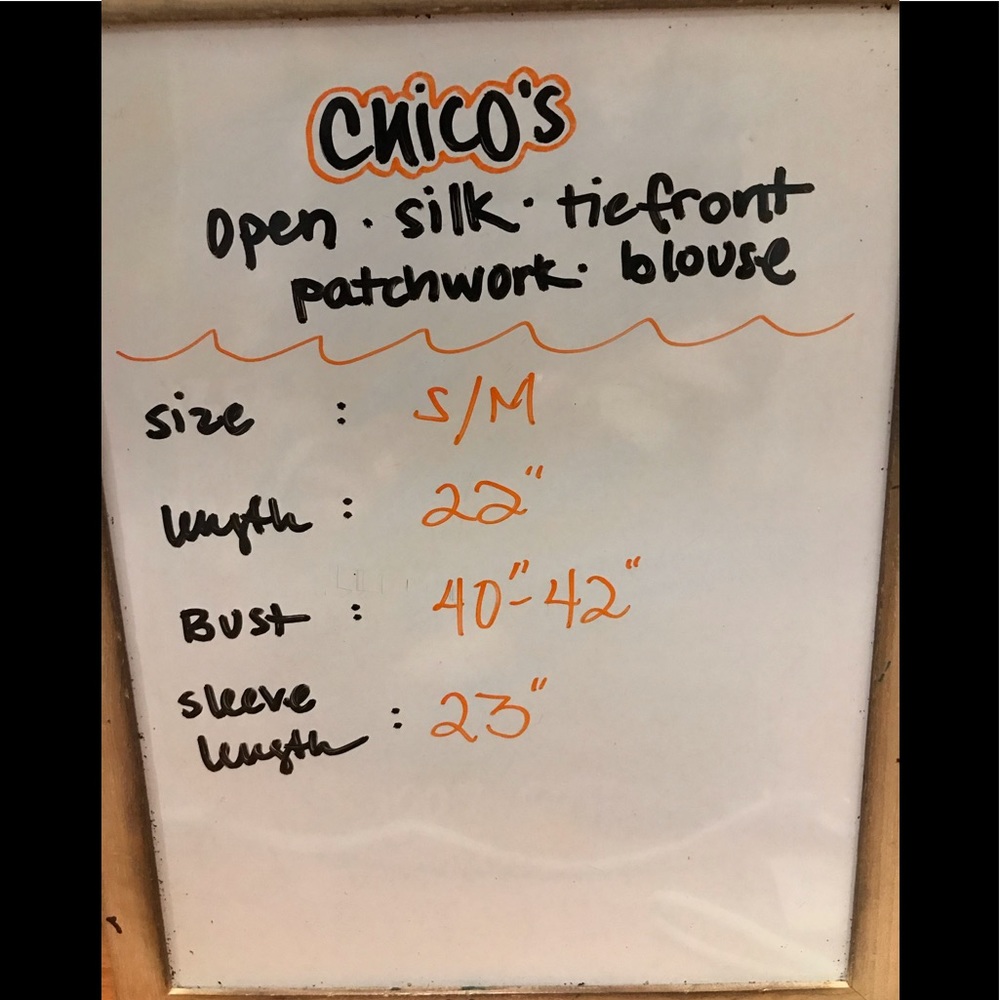 Chico's
Open · silk · tiefront
patchwork · blouse
size : S/M
length : 22"
Bust : 40"-42"
sleeve
length : 23"